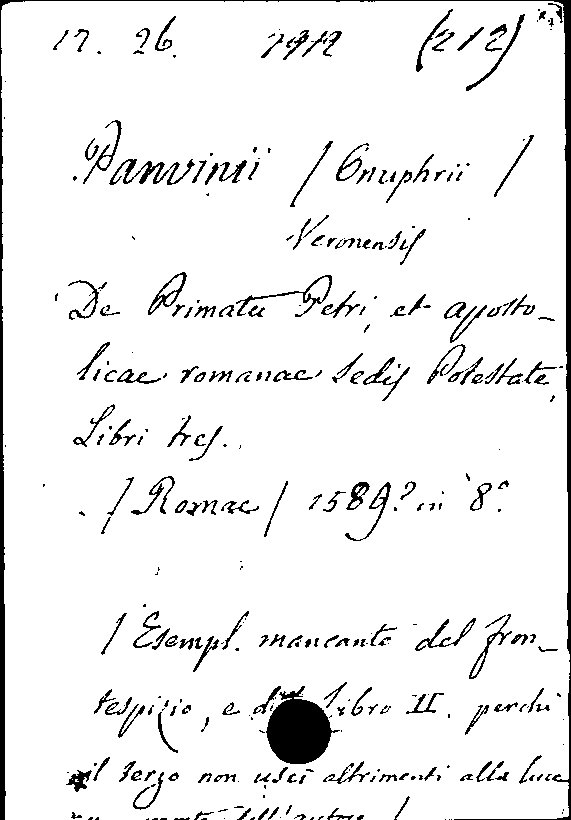 17. 26. 1912 (212)
Panvinii / Onuphrii /
Veronensis
De Primatu Petri, et aposto-
licae romanae Sedis Potestate,
Libri tres.
/ Romae / 1589? in 8°.
/ Esempl. mancante del fron-
tespizio, e del Libro II. perchè
il terzo non uscì altrimenti alla luce
morte dell'autore /